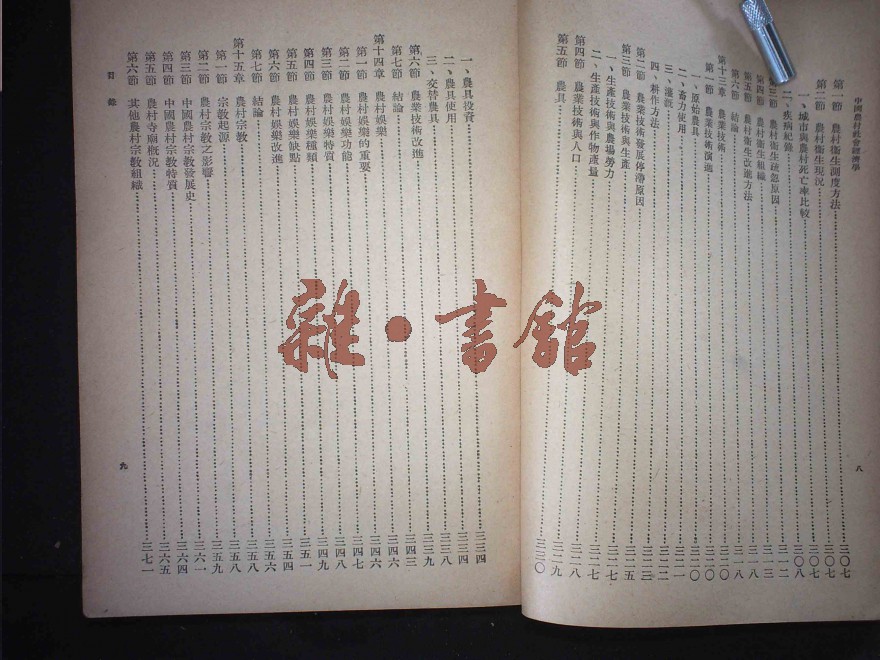 中國農村社會經濟學
第一節 農村衛生測度方法 三〇七
第二節 農村衛生現況 三〇七
一、城市與農村死亡率比較 三〇八
二、疾病紀錄 三一二
第三節 農村衛生疏忽原因 三一三
第四節 農村衛生組織
第五節 農村衛生改進方法 三一八
第六節 結論 三一八
第十三章 農業技術 三二〇
第一節 農業技術演進 三二〇
一、原始農具 三二〇
二、畜力使用 三二一
三、灌溉 三二二
四、耕作方法 三二二
第二節 農業技術發展停滯原因 三二五
第三節 農業技術與生產 三二七
一、生產技術與農場勞力 三二七
二、生產技術與作物產量 三二八
第四節 農業技術與人口 三二九
第五節 農具 三三〇
八
一、農具投資 三三四
二、農具使用 三三四
三、交替農具 三三八
第六節 農業技術改進 三三九
第七節 結論 三四三
第十四章 農村娛樂 三四六
第一節 農村娛樂的重要 三四六
第二節 農村娛樂功能 三四七
第三節 農村娛樂特質 三四八
第四節 農村娛樂種類 三四九
第五節 農村娛樂缺點 三五一
第六節 農村娛樂改進 三五四
第七節 結論 三五六
第十五章 農村宗教 三五八
第一節 宗教起源 三五八
第二節 農村宗教之影響 三五九
第三節 中國農村宗教發展史 三六一
第四節 中國農村宗教特質 三六四
第五節 農村寺廟概況 三六五
第六節 其他農村宗教組織 三七一
目錄
九
雜·書館